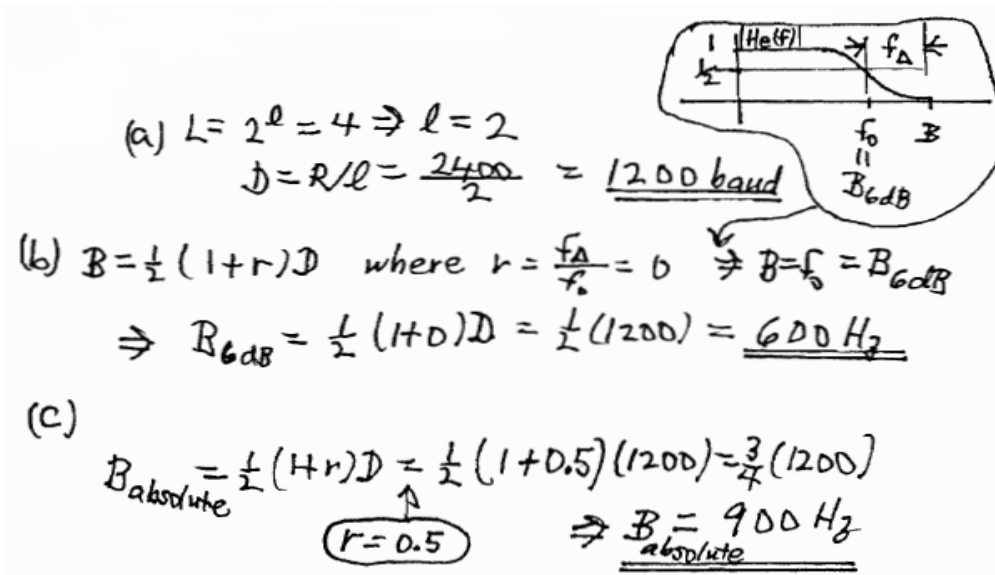 |He(f)|
1
f_Δ
1/2
f₀ B
(a) L = 2^ℓ = 4 ⇒ ℓ = 2
=
B_6dB
D = R/ℓ = 2400/2 = 1200 baud
(b) B = 1/2 (1+r)D where r = f_Δ/f₀ = 0 ⇒ B = f₀ = B_6dB
⇒ B_6dB = 1/2 (1+0)D = 1/2 (1200) = 600 Hz
(c)
B_absolute = 1/2 (1+r)D = 1/2 (1+0.5)(1200) = 3/4 (1200)
r = 0.5
⇒ B_absolute = 900 Hz